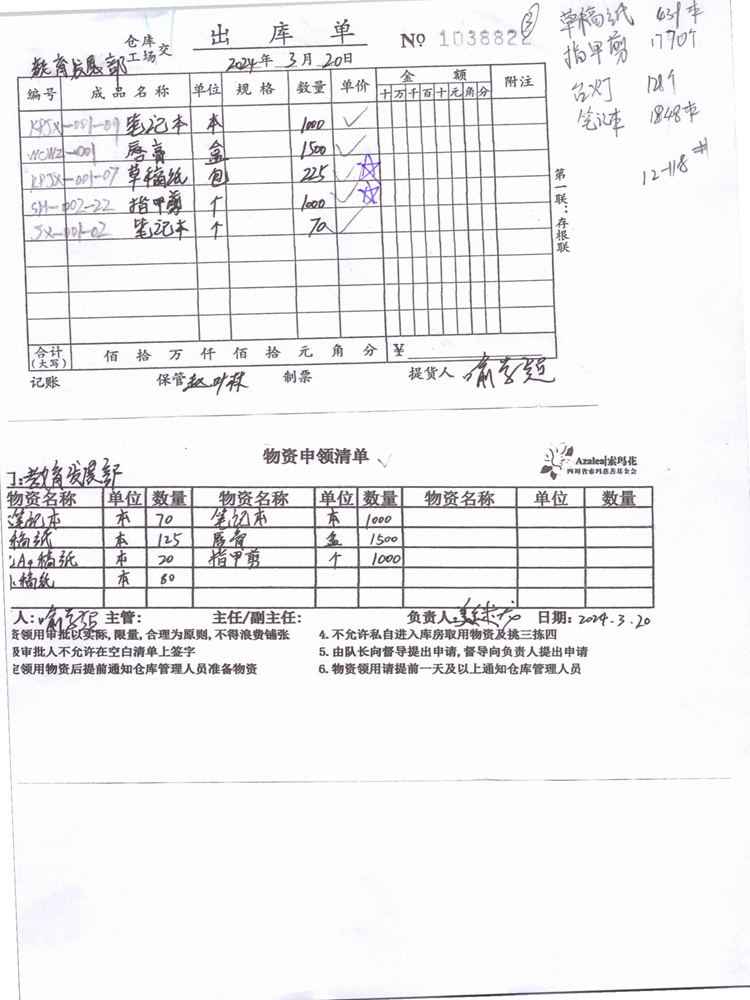 ③
草稿纸 439本
指甲剪 1790个
台灯 128个
笔记本 1848本
12-118#
出库单
教育发展部 仓库 工场 交
2024年3月20日
№ 1038822
编号 成品名称 单位 规格 数量 单价 金额 附注
十 万 千 百 十 元 角 分
KPJX-001-09 笔记本 本 1000
WCWZ-001 唇膏 盒 1500
KPJX-001-07 草稿纸 包 225
SH-002-22 指甲剪 个 1000
JX-001-02 笔记本 个 70
第一联:存根联
合计(大写) 佰 拾 万 仟 佰 拾 元 角 分 ¥
记账 保管 赵叶林 制票 提货人
物资申领清单
Azalea|索玛花
四川省索玛慈善基金会
门:教育发展部
物资名称 单位 数量 物资名称 单位 数量 物资名称 单位 数量
笔记本 本 70 笔记本 本 1000
稿纸 本 125 唇膏 盒 1500
A4稿纸 本 20 指甲剪 个 1000
稿纸 本 80
人: 主管: 主任/副主任: 负责人: 日期:2024.3.20
领用审批以实际,限量,合理为原则,不得浪费铺张 4.不允许私自进入库房取用物资及挑三拣四
及审批人不允许在空白清单上签字 5.由队长向督导提出申请,督导向负责人提出申请
定领用物资后提前通知仓库管理人员准备物资 6.物资领用请提前一天及以上通知仓库管理人员